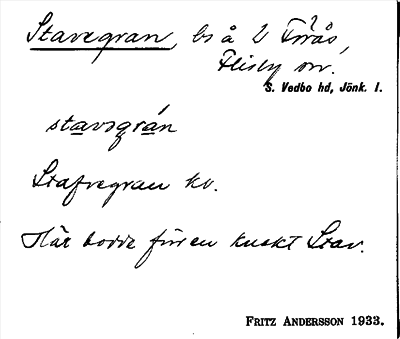 Stavegran, bs å 2 Förås,
Flisby sn.
S. Vedbo hd, Jönk. l.
stavsgrán
Stafvegran kv.
Här bodde förr en knekt Stav.
FRITZ ANDERSSON 1933.